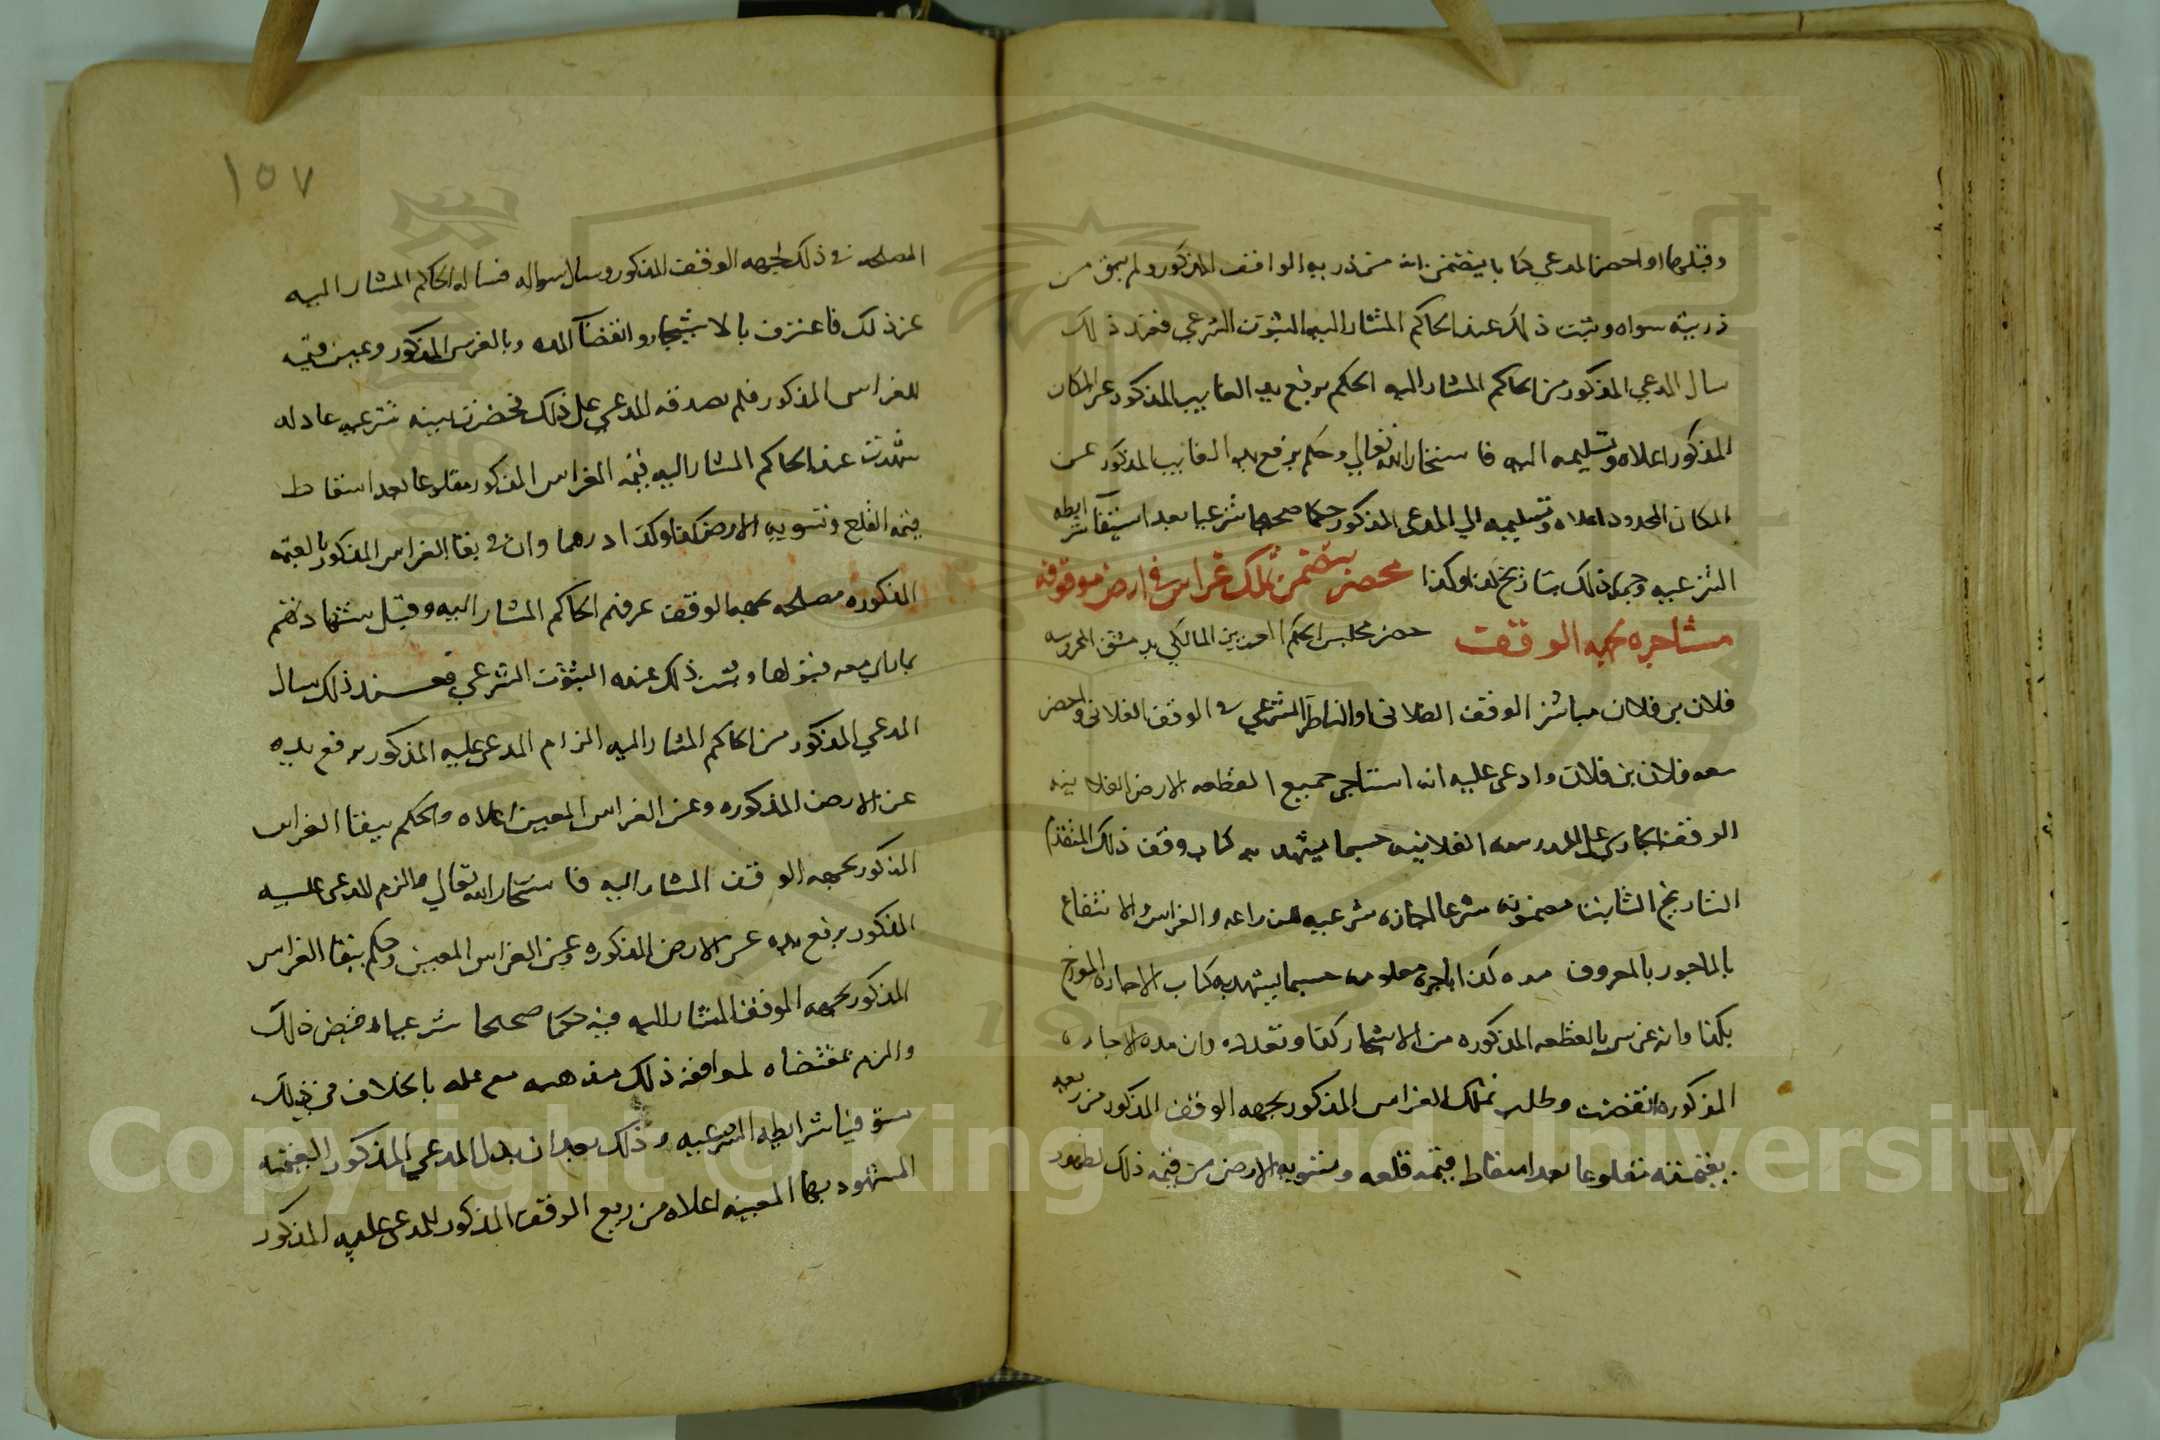 وقبلها او احضر المدعي كتابا يتضمن انه من ذريه الواقف المذكور ولم يبق من
ذريته سواه وثبت ذلك عند الحاكم المشار اليه الثبوت الشرعي فعند ذلك
سال المدعي المذكور من الحاكم المشار اليه الحكم برفع يد الغايب المذكور عن المكان
المذكور اعلاه وتسليمه اليه فاستخار الله تعالي وحكم برفع يد الغايب المذكور عن
المكان المحدود اعلاه وتسليمه الي المدعي المذكور حكما صحيحا شرعيا بعد استيفا شرايطه
الشرعيه وجري ذلك بتاريخ كذا وكذا محضر يتضمن تملك غراس في ارض موقوفه
مستاجره لجهه الوقف حضر مجلس الحكم العزيز المالكي بدمشق المحروسه
فلان بن فلان مباشر الوقف الفلاني او الناظر الشرعي في الوقف الفلاني واحضر
معه فلان بن فلان وادعي عليه انه استاجر جميع القطعه الارض الفلانيه
الوقف الجاري علي المدرسه الفلانيه حسبما يشهد به كتاب وقف ذلك المتقدم
التاريخ الثابت مضمونه شرعا اجازه شرعيه للزراعه والغراس والانتفاع
بالماجور بالمعروف مده كذا باجره معلومه حسبما يشهد به كتاب الاجاره المورخ
بكذا وانه غرس بالقطعه المذكوره من الاشجار كذا وتعدده وان مده الاجاره
المذكوره انقضت وطلب تملك الغراس المذكور لجهه الوقف المذكور من ريعه
بقيمته مقلوعا بعد اسقاط قيمه قلعه وتسويه الارض من قيمه ذلك لظهور
١٥٧
المصلحه في ذلك لجهه الوقف المذكور وسال سواله فساله الحاكم المشار اليه
عن ذلك فاعترف بالاستيجار وانقضا المده وبالغرس المذكور وعين قيمه
للغراس المذكور فلم يصدقه المدعي علي ذلك فحضرت بينه شرعيه عادله
شهدت عند الحاكم المشار اليه بقيمه الغراس المذكور مقلوعا بعد اسقاط
قيمه القلع وتسويه الارض كذا وكذا درهما وان في بقا الغراس المذكور بالقيمه
المذكوره مصلحه لجهه الوقف عرفهم الحاكم المشار اليه وقبل شهادتهم
بما راي معه قبولها وثبت ذلك عنده الثبوت الشرعي فعند ذلك سال
المدعي المذكور من الحاكم المشار اليه الزام المدعي عليه المذكور برفع يده
عن الارض المذكوره وعن الغراس المعين اعلاه والحكم ببقا الغراس
المذكور لجهه الوقف المشار اليه فاستخار الله تعالي والزم المدعي عليه
المذكور برفع يده عن الارض المذكوره وعن الغراس المعين وحكم ببقا الغراس
المذكور لجهه الوقف المشار اليه فيه حكما صحيحا شرعيا امضي ذلك
والزم بمقتضاه لموافقه ذلك مذهبه مع علمه بالخلاف في ذلك
مستوفيا شرايطه الشرعيه وذلك بعد ان بدل المدعي المذكور القيمه
المشهود بها المعينه اعلاه من ريع الوقف المذكور للمدعي عليه المذكور
Copyright © King Saud University
1957